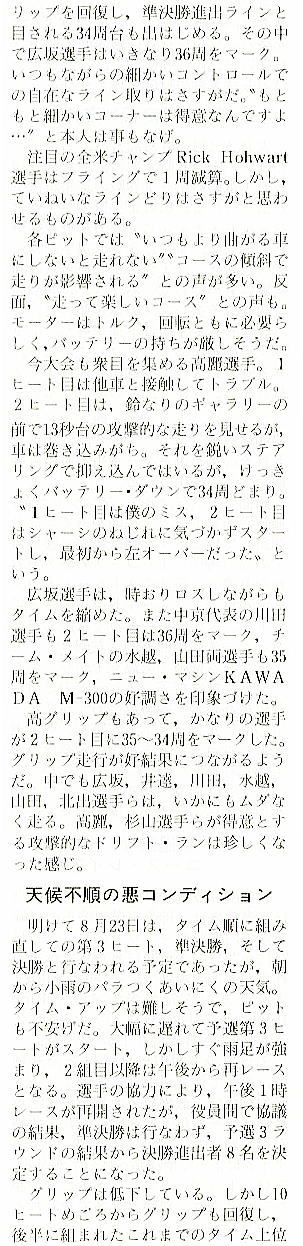 リップを回復し，準決勝進出ラインと
目される34周台も出はじめる。その中
で広坂選手はいきなり36周をマーク。
いつもながらの細かいコントロールで
の自在なライン取りはさすがだ。〝もと
もと細かいコーナーは得意なんですよ
…〟と本人は事もなげ。
　注目の全米チャンプRick Hohwart
選手はフライングで1周減算。しかし，
ていねいなラインどりはさすがと思わ
せるものがある。
　各ピットでは〝いつもより曲がる車
にしないと走れない〟〝コースの傾斜で
走りが影響される〟との声が多い。反
面，〝走って楽しいコース〟との声も。
モーターはトルク，回転ともに必要ら
しく，バッテリーの持ちが厳しそうだ。
　今大会も衆目を集める高麗選手。1
ヒート目は他車と接触してトラブル。
2ヒート目は，鈴なりのギャラリーの
前で13秒台の攻撃的な走りを見せるが，
車は巻き込みがち。それを鋭いステア
リングで抑え込んではいるが，けっき
ょくバッテリー・ダウンで34周どまり。
〝1ヒート目は僕のミス，2ヒート目
はシャーシのねじれに気づかずスター
トし，最初から左オーバーだった〟と
いう。
　広坂選手は，時おりロスしながらも
タイムを縮めた。また中京代表の川田
選手も2ヒート目は36周をマーク，チ
ーム・メイトの水越，山田両選手も35
周をマーク，ニュー・マシンKAWA
DA　M-300の好調さを印象づけた。
　高グリップもあって，かなりの選手
が2ヒート目に35〜34周をマークした。
グリップ走行が好結果につながるよう
だ。中でも広坂，井逵，川田，水越，
山田，北出選手らは，いかにもムダな
く走る。高麗，杉山選手らが得意とす
る攻撃的なドリフト・ランは珍しくな
った感じ。
天候不順の悪コンディション
　明けて8月23日は，タイム順に組み
直しての第3ヒート，準決勝，そして
決勝と行なわれる予定であったが，朝
から小雨のパラつくあいにくの天気。
タイム・アップは難しそうで，ピット
も不安げだ。大幅に遅れて予選第3ヒ
ートがスタート，しかしすぐ雨足が強
まり，2組目以降は午後から再レース
となる。選手の協力により，午後1時
レースが再開されたが，役員間で協議
の結果，準決勝は行なわず，予選3ラ
ウンドの結果から決勝進出者8名を決
定することになった。
　グリップは低下している。しかし10
ヒートめごろからグリップも回復し，
後半に組まれたこれまでのタイム上位